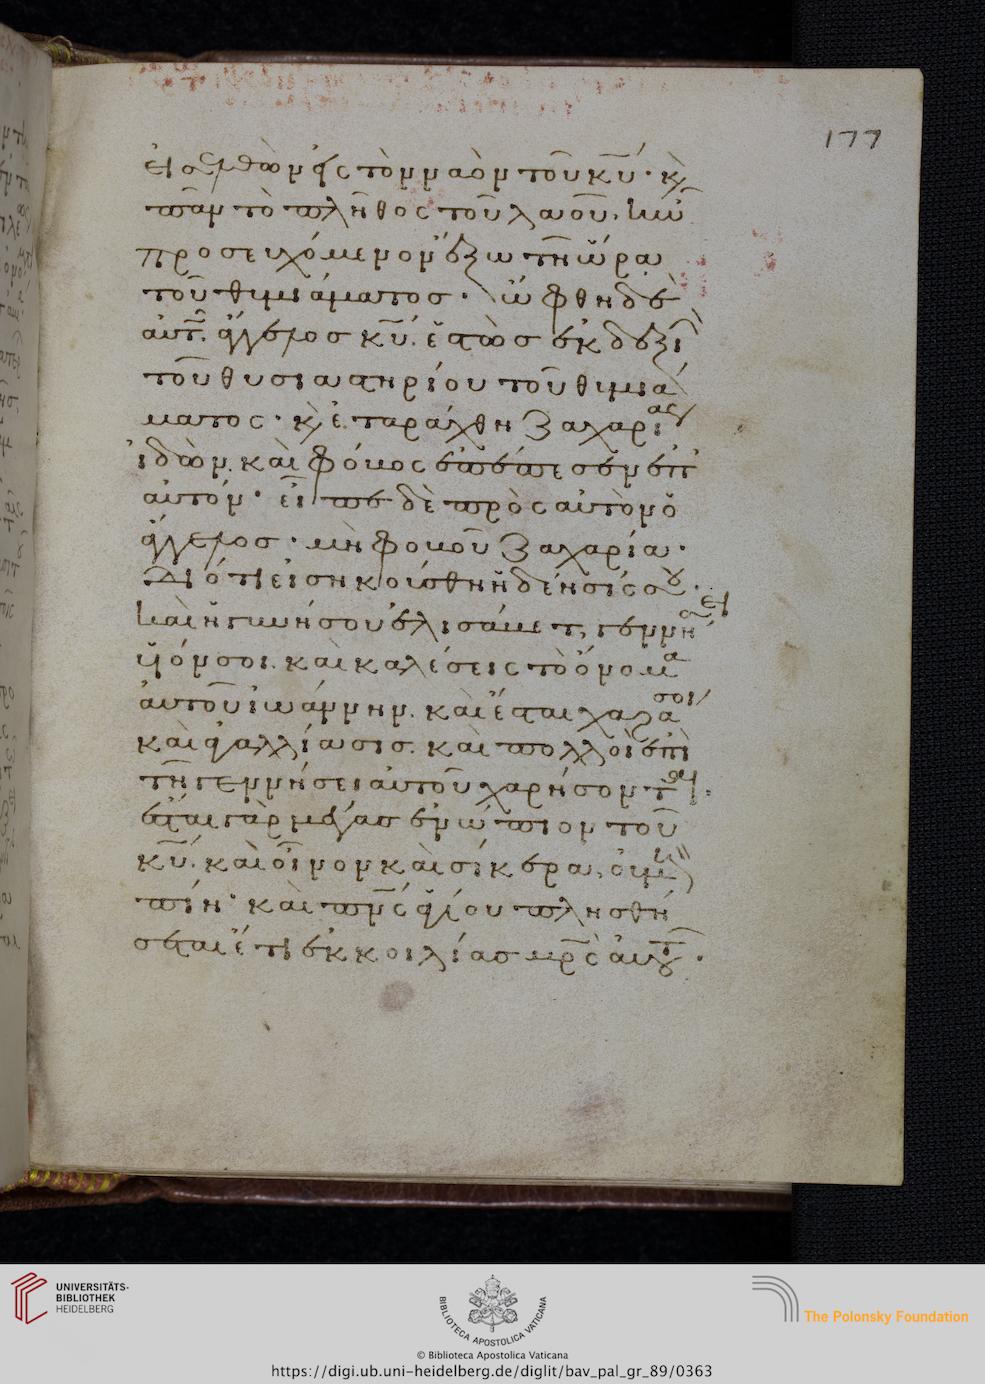 177
εἰσελθὼν εἰς τὸν ναὸν τοῦ κυ̅· κ̀
πᾶν τὸ πλῆθος τοῦ λαοῦ, ἦν
προσευχόμενον ἔξω τῆ ὥρα
τοῦ θυμιάματοσ· ὤφθη δὲ
αὐτῶ ἄγγελοσ κυ̅. ἑστὼσ ἐκ δεξιῶν
τοῦ θυσιαστηρίου τοῦ θυμιά
ματος· κ̀ ἐταράχθη Ζαχαρίας
ἰδὼν. καὶ φόβος ἐπέπεσεν ἐπ'
αὐτόν· εἶπε δὲ πρὸς αὐτὸν ὁ
ἄγγελοσ· μὴ φοβοῦ Ζαχαρία·
Διότι εἰσηκούσθη ἡ δέησίς σου·
καὶ ἡ γυνή σου ἐλισάβετ, γεννήσει
υἱόν σοι. καὶ καλέσεις τὸ ὄνομα
αὐτοῦ ἰωάννην. καὶ ἔσται χαρά σοι
καὶ ἀγαλλίασισ. καὶ πολλοὶ ἐπὶ
τῆ γεννήσει αὐτοῦ χαρήσονται·
ἔσται γὰρ μέγασ ἐνώπιον τοῦ
κυ̅. καὶ οἶνον καὶ σίκερα, οὐ μὴ
πίη· καὶ πν̅ς ἁγίου πλησθή
σεται ἔτι ἐκ κοιλίασ μρ̅ς αὐτοῦ·
UNIVERSITÄTS-
BIBLIOTHEK
HEIDELBERG
BIBLIOTECA APOSTOLICA VATICANA
The Polonsky Foundation
© Biblioteca Apostolica Vaticana
https://digi.ub.uni-heidelberg.de/diglit/bav_pal_gr_89/0363